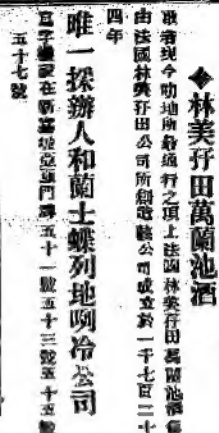 ◆林美孖田萬蘭池酒
敢者現今叻地所銷通行之頂上法國林美孖田萬蘭池酒係
由法國林美孖田公司所創造該公司成立於一千七百二十
四年
唯一採辦人和蘭士蝶列地咧冷公司
寫字樓設在新嘉坡亞 門牌五十一號五十三號五十五號
五十七號